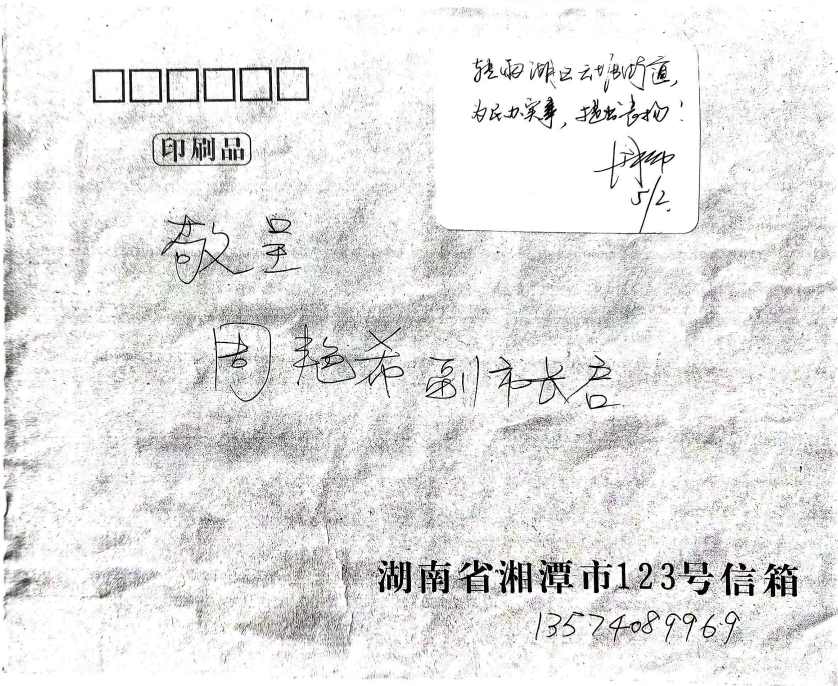 转雨湖区云塘街道,
为民办实事,
5/2.
印刷品
敬呈
周艳希副市长启
湖南省湘潭市123号信箱
13574089969